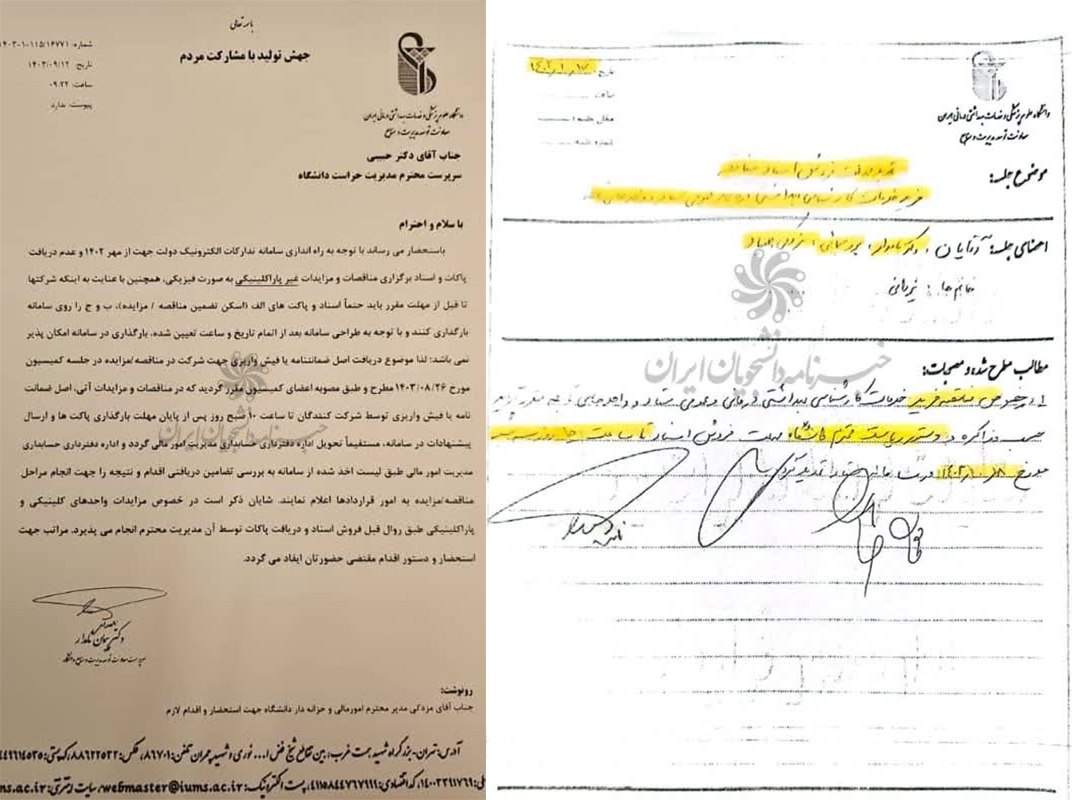 باسمه تعالی
جهش تولید با مشارکت مردم
شماره: ۱۴۰۳-۱۰۱۱۵/۱۶۷۷۱
تاریخ: ۱۴۰۳/۰۹/۱۲
ساعت: ۰۹:۲۲
پیوست: ندارد
دانشگاه علوم پزشکی و خدمات بهداشتی درمانی ایران
معاونت توسعه مدیریت و منابع
جناب آقای دکتر حبیبی
سرپرست محترم مدیریت حراست دانشگاه
با سلام و احترام
باستحضار می رساند با توجه به راه اندازی سامانه تدارکات الکترونیک دولت جهت از مهر ۱۴۰۲ و عدم دریافت
پاکات و اسناد برگزاری مناقصات و مزایدات غیر پاراکلینیکی به صورت فیزیکی، همچنین با عنایت به اینکه شرکتها
تا قبل از مهلت مقرر باید حتماً اسناد و پاکت های الف (اسکن تضمین مناقصه / مزایده)، ب و ج را روی سامانه
بارگذاری کنند و با توجه به طراحی سامانه بعد از اتمام تاریخ و ساعت تعیین شده، بارگذاری در سامانه امکان پذیر
نمی باشد؛ لذا موضوع دریافت اصل ضمانتنامه یا فیش واریزی جهت شرکت در مناقصه/مزایده در جلسه کمیسیون
مورخ ۱۴۰۳/۰۸/۲۶ مطرح و طبق مصوبه اعضای کمیسیون مقرر گردید که در مناقصات و مزایدات آتی، اصل ضمانت
نامه یا فیش واریزی توسط شرکت کنندگان تا ساعت ۱۰ صبح روز پس از پایان مهلت بارگذاری پاکت ها و ارسال
پیشنهادات در سامانه، مستقیماً تحویل اداره دفترداری حسابداری مدیریت امور مالی گردد و اداره دفترداری حسابداری
مدیریت امور مالی طبق لیست اخذ شده از سامانه به بررسی تضامین دریافتی اقدام و نتیجه را جهت انجام مراحل
مناقصه/مزایده به امور قراردادها اعلام نمایند. شایان ذکر است در خصوص مزایدات واحدهای کلینیکی و
پاراکلینیکی طبق روال قبل فروش اسناد و دریافت پاکات توسط آن مدیریت محترم انجام می پذیرد. مراتب جهت
استحضار و دستور اقدام مقتضی حضورتان ایفاد می گردد.
دکتر پیمان نامدار
سرپرست معاونت توسعه مدیریت و منابع دانشگاه
رونوشت:
جناب آقای مزدکی مدیر محترم امورمالی و خزانه دار دانشگاه جهت استحضار و اقدام لازم
آدرس: تهران- بزرگراه شهید همت غرب، بین تقاطع شیخ فضل ا... نوری و شهید چمران تلفن: ۸۶۷۰۱، فکس: ۸۸۶۲۲۵۳۲، کدپستی: ۴۴۹۶۱۴۵۳۵
ملی: ۱۴۰۰۳۳۹۱۷۶۹، کد اقتصادی: ۴۱۱۵۸۴۴۷۶۷۹۹۱، پست الکترونیک: webmaster@iums.ac.ir، سایت اینترنتی: ms.ac.ir
دانشگاه علوم پزشکی و خدمات بهداشتی درمانی ایران
معاونت توسعه مدیریت و منابع
تاریخ:
ساعت
محل جلسه:
شماره جلسه:
موضوع جلسه: تمدید مهلت فروش اسناد مناقصه
خرید خدمات کارشناسی بهداشتی
اعضای جلسه: آقایان، دکتر نامدار،
خانم ها:
مطالب مطرح شده و مصوبات:
۱- در خصوص مناقصه خرید خدمات کارشناسی بهداشتی درمانی و عمومی ستاد و واحدهای تابعه
حسب مذاکره و دستور ریاست محترم دانشگاه مهلت فروش اسناد تا ساعت
مورخ ۱۴۰۳/۱۰/۱۸ تمدید گردد
خبرنامه دانشجویان ایران